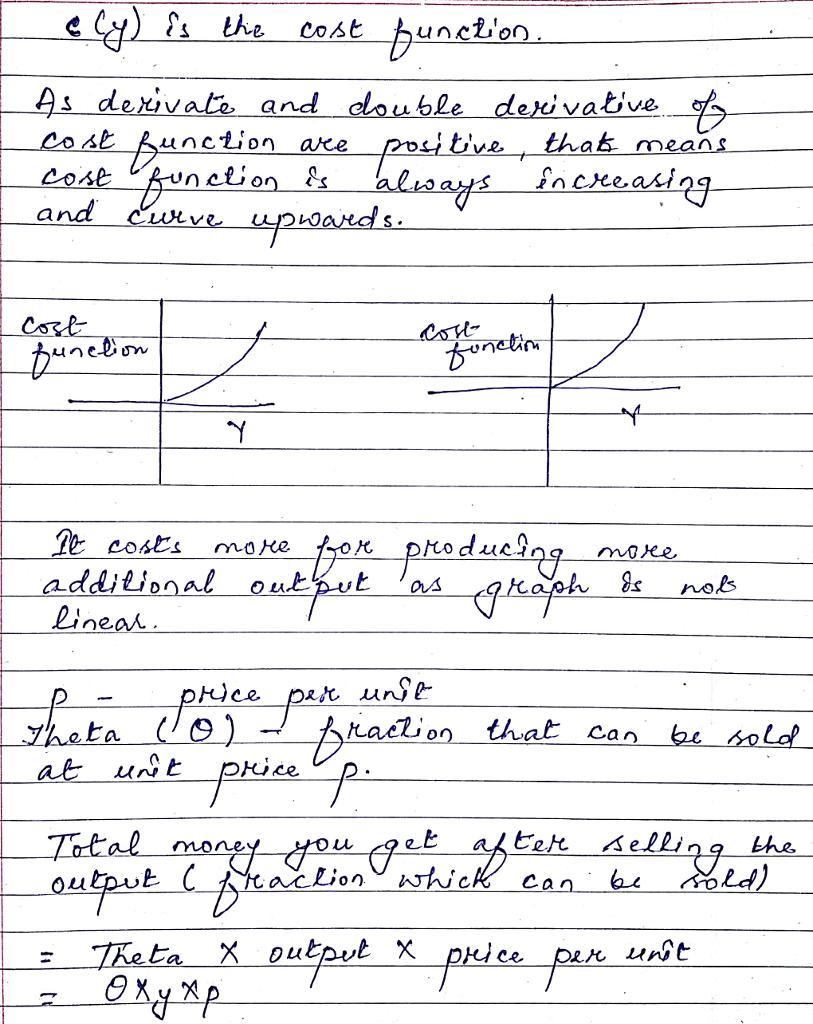 c(y) is the cost function.
As derivate and double derivative of
cost function are positive, that means
cost function is always increasing
and curve upwards.
cost
function
Y
cost
function
Y
It costs more for producing more
additional output as graph is not
linear.
p - price per unit
Theta (θ) - fraction that can be sold
at unit price p.
Total money you get after selling the
output (fraction which can be sold)
= Theta X output X price per unit
= θ X y X p